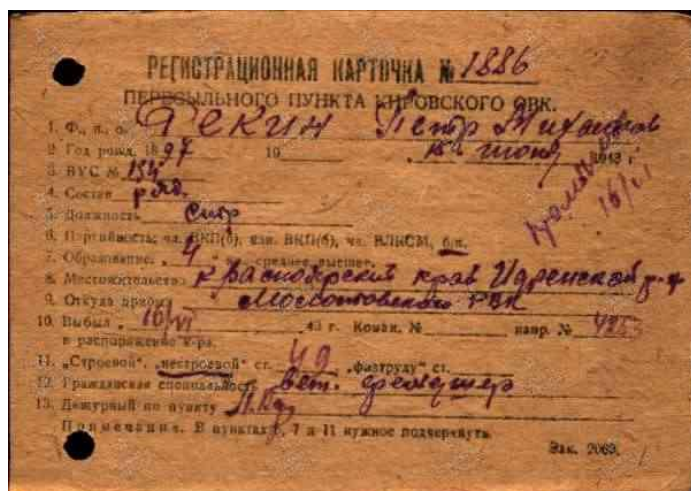 РЕГИСТРАЦИОННАЯ КАРТОЧКА № 1886
ПЕРЕСЫЛЬНОГО ПУНКТА КИРОВСКОГО ОВК.
1. Ф., и., о. Фекин Петр Михайлов
2. Год рожд. 1897 19 июня 1943 г.
3. ВУС № 134
4. Состав ряд.
5. Должность
6. Партийность: чл. ВКП(б), кан. ВКП(б), чл. ВЛКСМ, б/п.
7. Образование: 4 кл., среднее, высшее.
16/VI
8. Местожительство Красноярский край Идринской р-н
9. Откуда прибыл РВК
10. Выбыл „ 16/VI 43 г. Коман. № напр. № 4253
в распоряжение к-ра.
11. „Строевой", „нестроевой" ст. 49 „физтруду" ст.
12. Гражданская специальность вет. фельдшер
13. Дежурный по пункту
Примечание. В пунктах 6, 7 и 11 нужное подчеркнуть.
Зак. 2069.